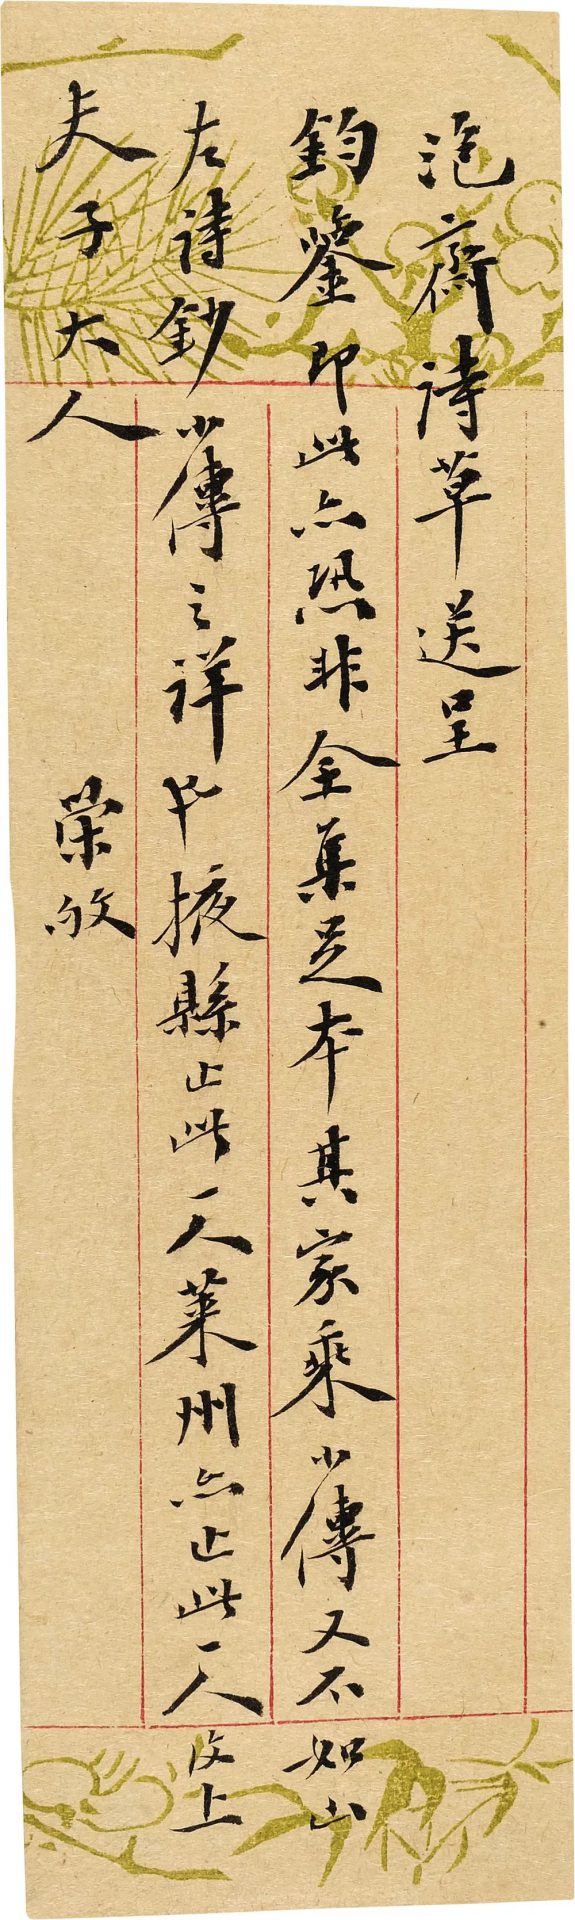 浥齋詩草送呈
鈞鑒即此亦恐非全集足本其家乘小傳又不如山
左詩鈔小傳之詳也掖縣止此一人萊州亦止此一人復上
夫子大人 榮